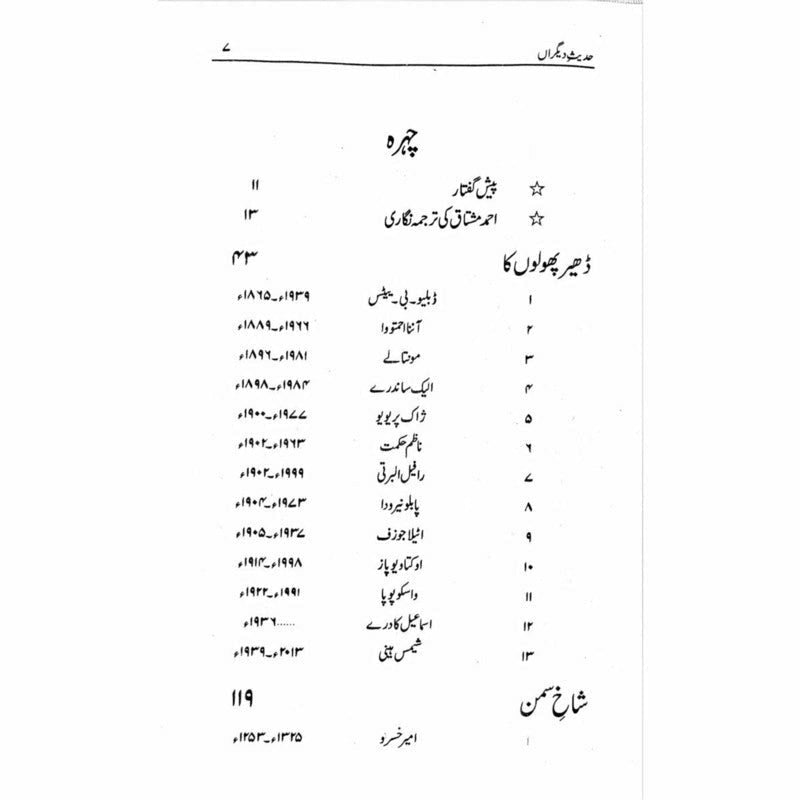 حدیثِ دیگراں ۷
چہرہ
☆ پیش گفتار ۱۱
☆ احمد مشتاق کی ترجمہ نگاری ۱۳
ڈھیر پھولوں کا ۴۳
۱ ڈبلیو۔بی۔ییٹس ۱۹۳۹ء۔۱۸۶۵ء
۲ آننا احمتووا ۱۹۶۶ء۔۱۸۸۹ء
۳ مونتالے ۱۹۸۱ء۔۱۸۹۶ء
۴ الیک ساندرے ۱۹۸۴ء۔۱۸۹۸ء
۵ ژاک پریویو ۱۹۷۷ء۔۱۹۰۰ء
۶ ناظم حکمت ۱۹۶۳ء۔۱۹۰۲ء
۷ رافیل البرتی ۱۹۹۹ء۔۱۹۰۲ء
۸ پابلو نیرودا ۱۹۷۳ء۔۱۹۰۴ء
۹ اتیلا جوزف ۱۹۳۷ء۔۱۹۰۵ء
۱۰ اوکتاویو پاز ۱۹۹۸ء۔۱۹۱۴ء
۱۱ واسکو پوپا ۱۹۹۱ء۔۱۹۲۲ء
۱۲ اسماعیل کادرے ......۱۹۳۶ء
۱۳ شیمس ہینی ۲۰۱۳ء۔۱۹۳۹ء
شاخِ سمن ۱۱۹
۱ امیر خسرو ۱۳۲۵ء۔۱۲۵۳ء